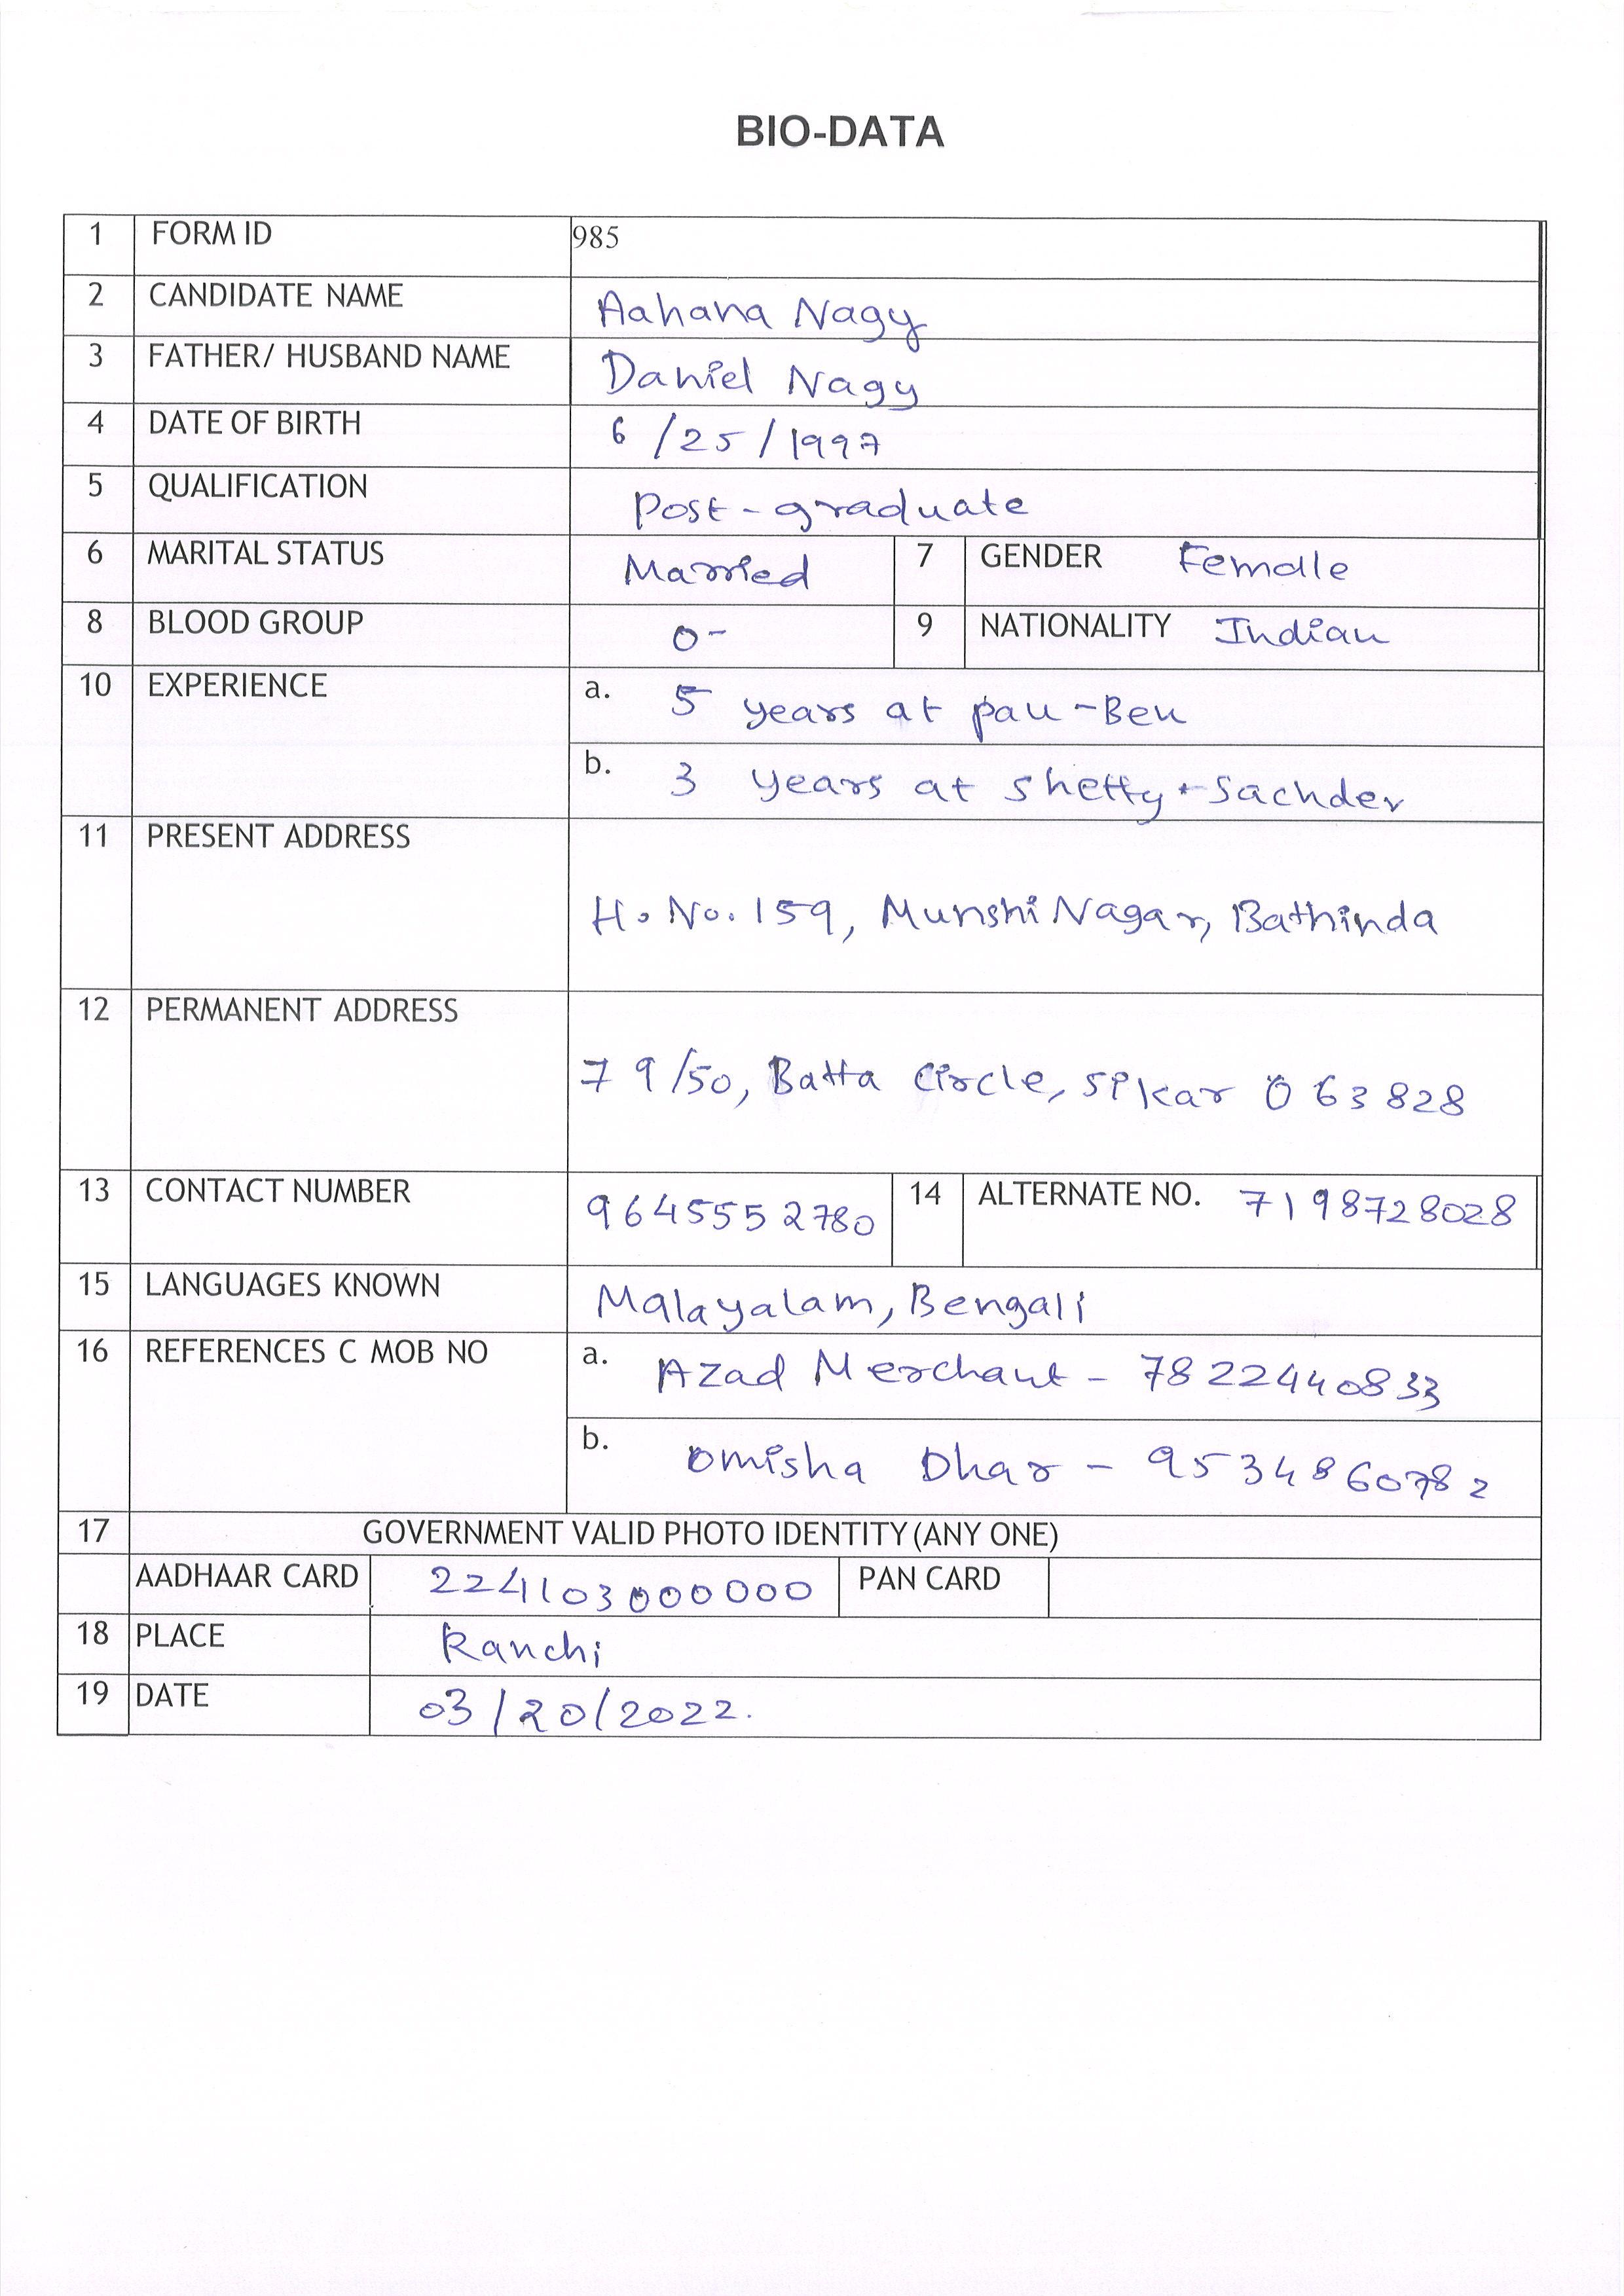 BIO-DATA
1 FORM ID 985
2 CANDIDATE NAME Aahana Nagy
3 FATHER/ HUSBAND NAME Daniel Nagy
4 DATE OF BIRTH 6/25/1997
5 QUALIFICATION Post-graduate
6 MARITAL STATUS Married 7 GENDER Female
8 BLOOD GROUP O- 9 NATIONALITY Indian
10 EXPERIENCE a. 5 years at pau-Ben
b. 3 years at Shetty + Sachdev
11 PRESENT ADDRESS
H. No. 159, Munshi Nagar, Bathinda
12 PERMANENT ADDRESS
79/50, Batta Circle, Sikar 063828
13 CONTACT NUMBER 9645552780 14 ALTERNATE NO. 7198728028
15 LANGUAGES KNOWN Malayalam, Bengali
16 REFERENCES C MOB NO a. Azad Merchant - 7822440833
b. Omisha Dhar - 9534860782
17 GOVERNMENT VALID PHOTO IDENTITY (ANY ONE)
AADHAAR CARD 224103000000 PAN CARD
18 PLACE Ranchi
19 DATE 03/20/2022.